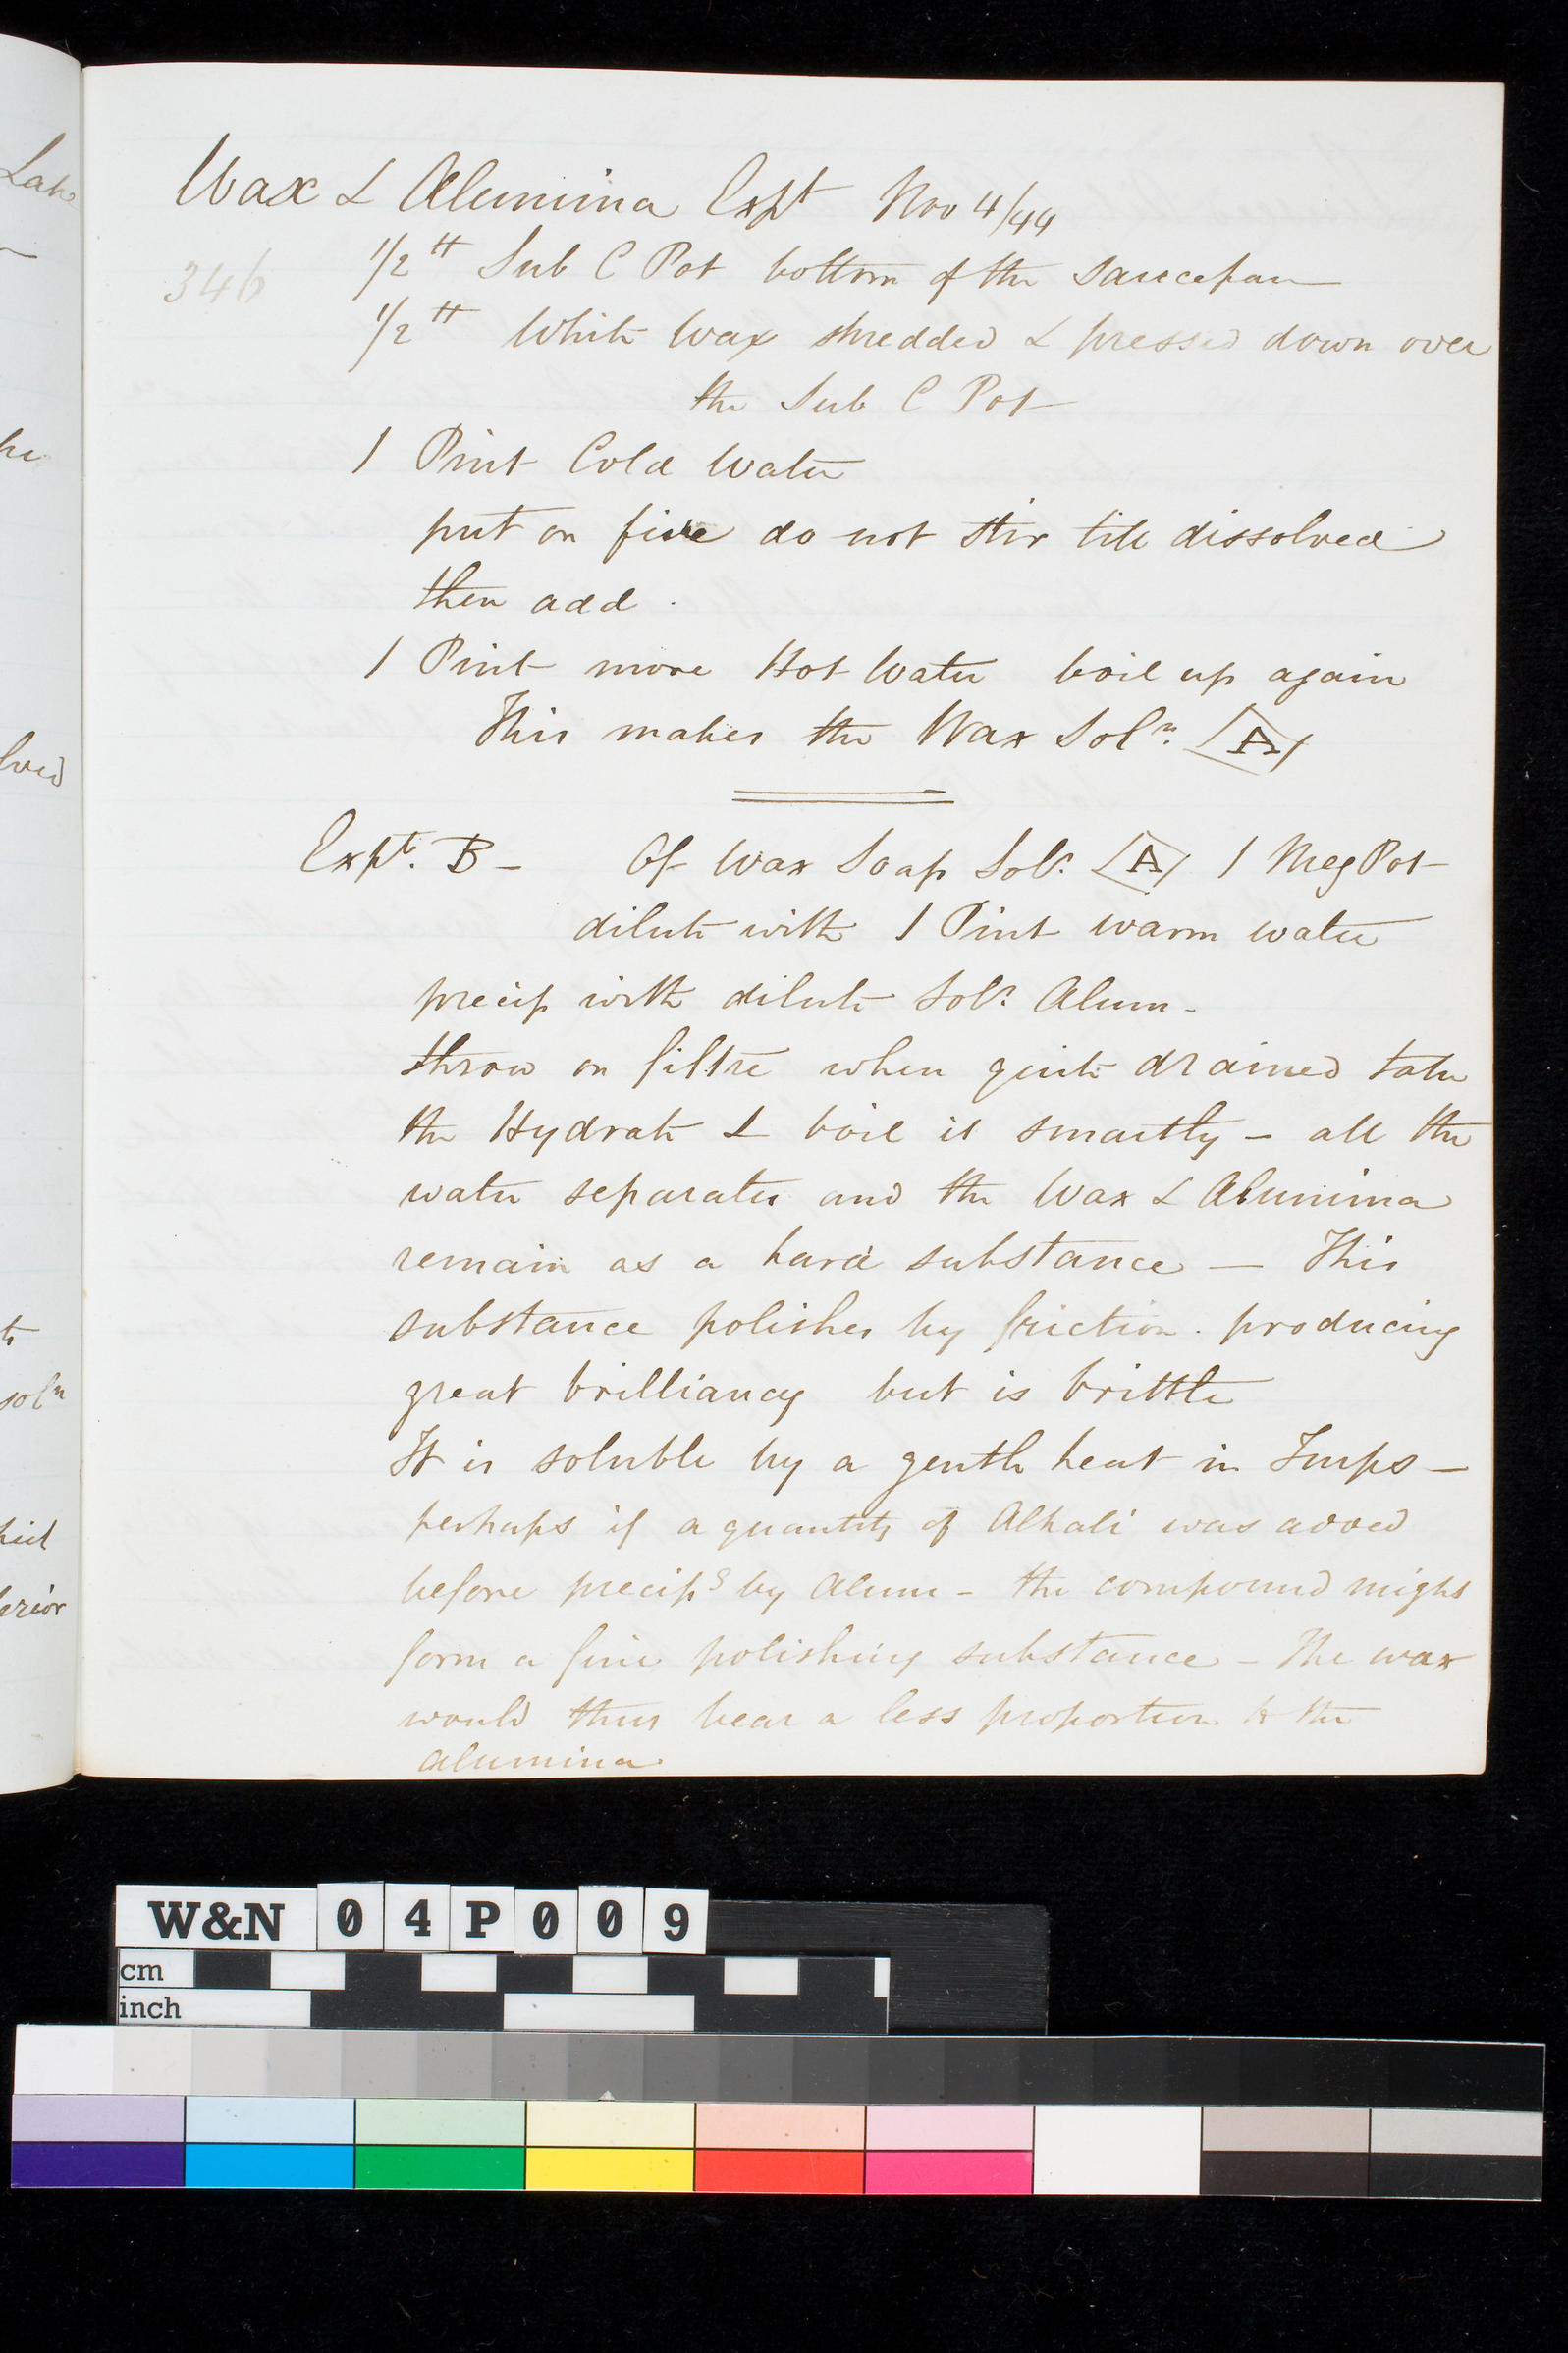 Wax & Alumina Expt Nov 4/44
346
1/2 ℔ Sub C Pot bottom of the saucepan
1/2 ℔ White Wax shredded & pressed down over
the Sub C Pot
1 Pint Cold Water
put on fire do not stir till dissolved
then add .
1 Pint more Hot Water boil up again
This makes the Wax Soln. A
Expt. B - Of Wax Soap Soln. A 1 Meg Pot
dilute with 1 Pint warm water
precip with dilute Soln. Alum -
throw on filtre when quite drained take
the Hydrate & boil it smartly - all the
water separates and the Wax & Alumina
remain as a hard substance - This
substance polishes by friction . producing
great brilliancy but is brittle
It is soluble by a gentle heat in Turps -
perhaps if a quantity of Alkali was added
before precipg by Alum - the compound might
form a fine polishing substance - The wax
would thus bear a less proportion to the
Alumina
Lake
lved
soln
erior
W&N 04P009
cm
inch